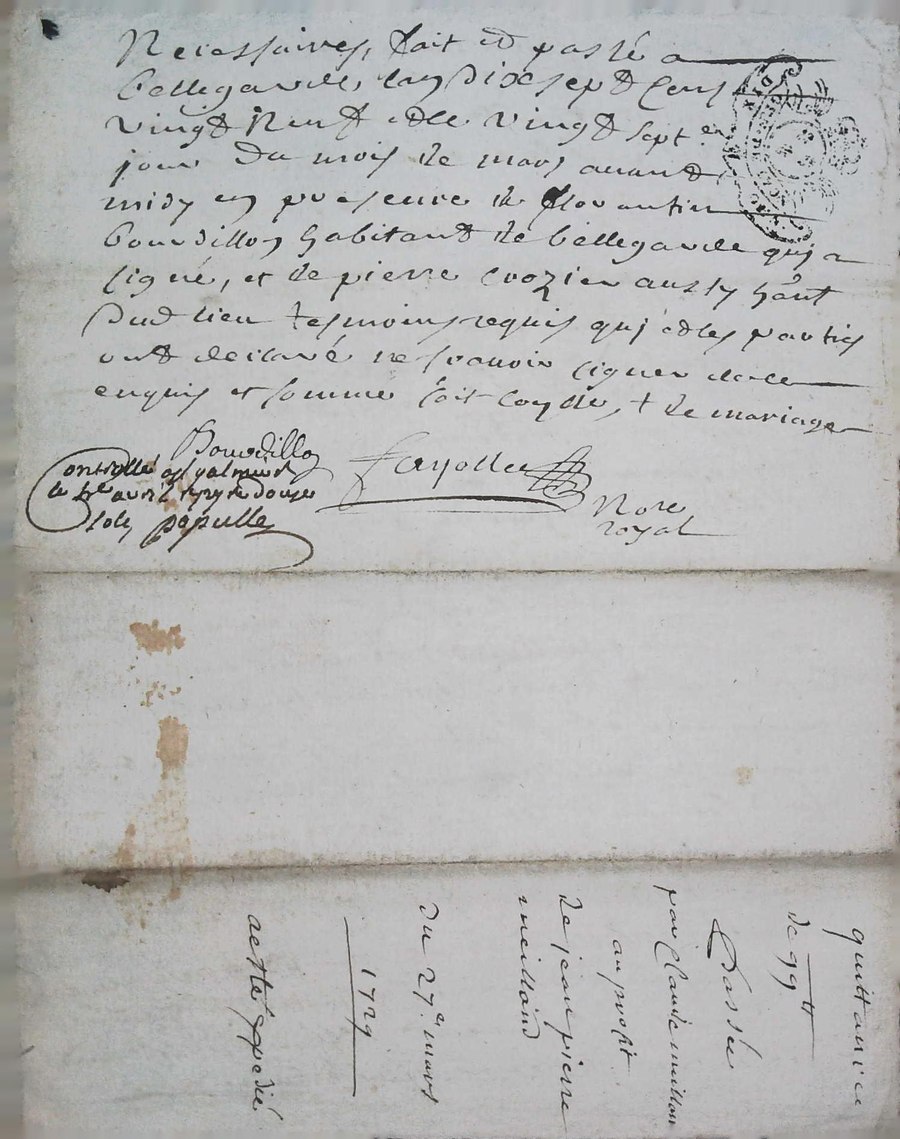 Necessaires, fait et passé a
bellegarde, lan dix sept cens
vingt neuf et le vingt sept.e
jour du mois de mars avant
midy en presence de florantin
bourdillon habitant de bellegarde quj a
signé, et de pierre crozier aussy hânt
dud lieu tesmoins requis quj et les parties
ont declaré ne scavoir signer de ce
enquis et sommé soit controllé, + de mariage
Bourdillon
Controllé a St galmier
le avril 1729 Rc douze
sols papulle
fayolle
Nore
royal
quittance
de 99tt
Passée
par Claude meillan
au profit
de jean pierre
meilland
du 27.e mars
1729
a esté expedié